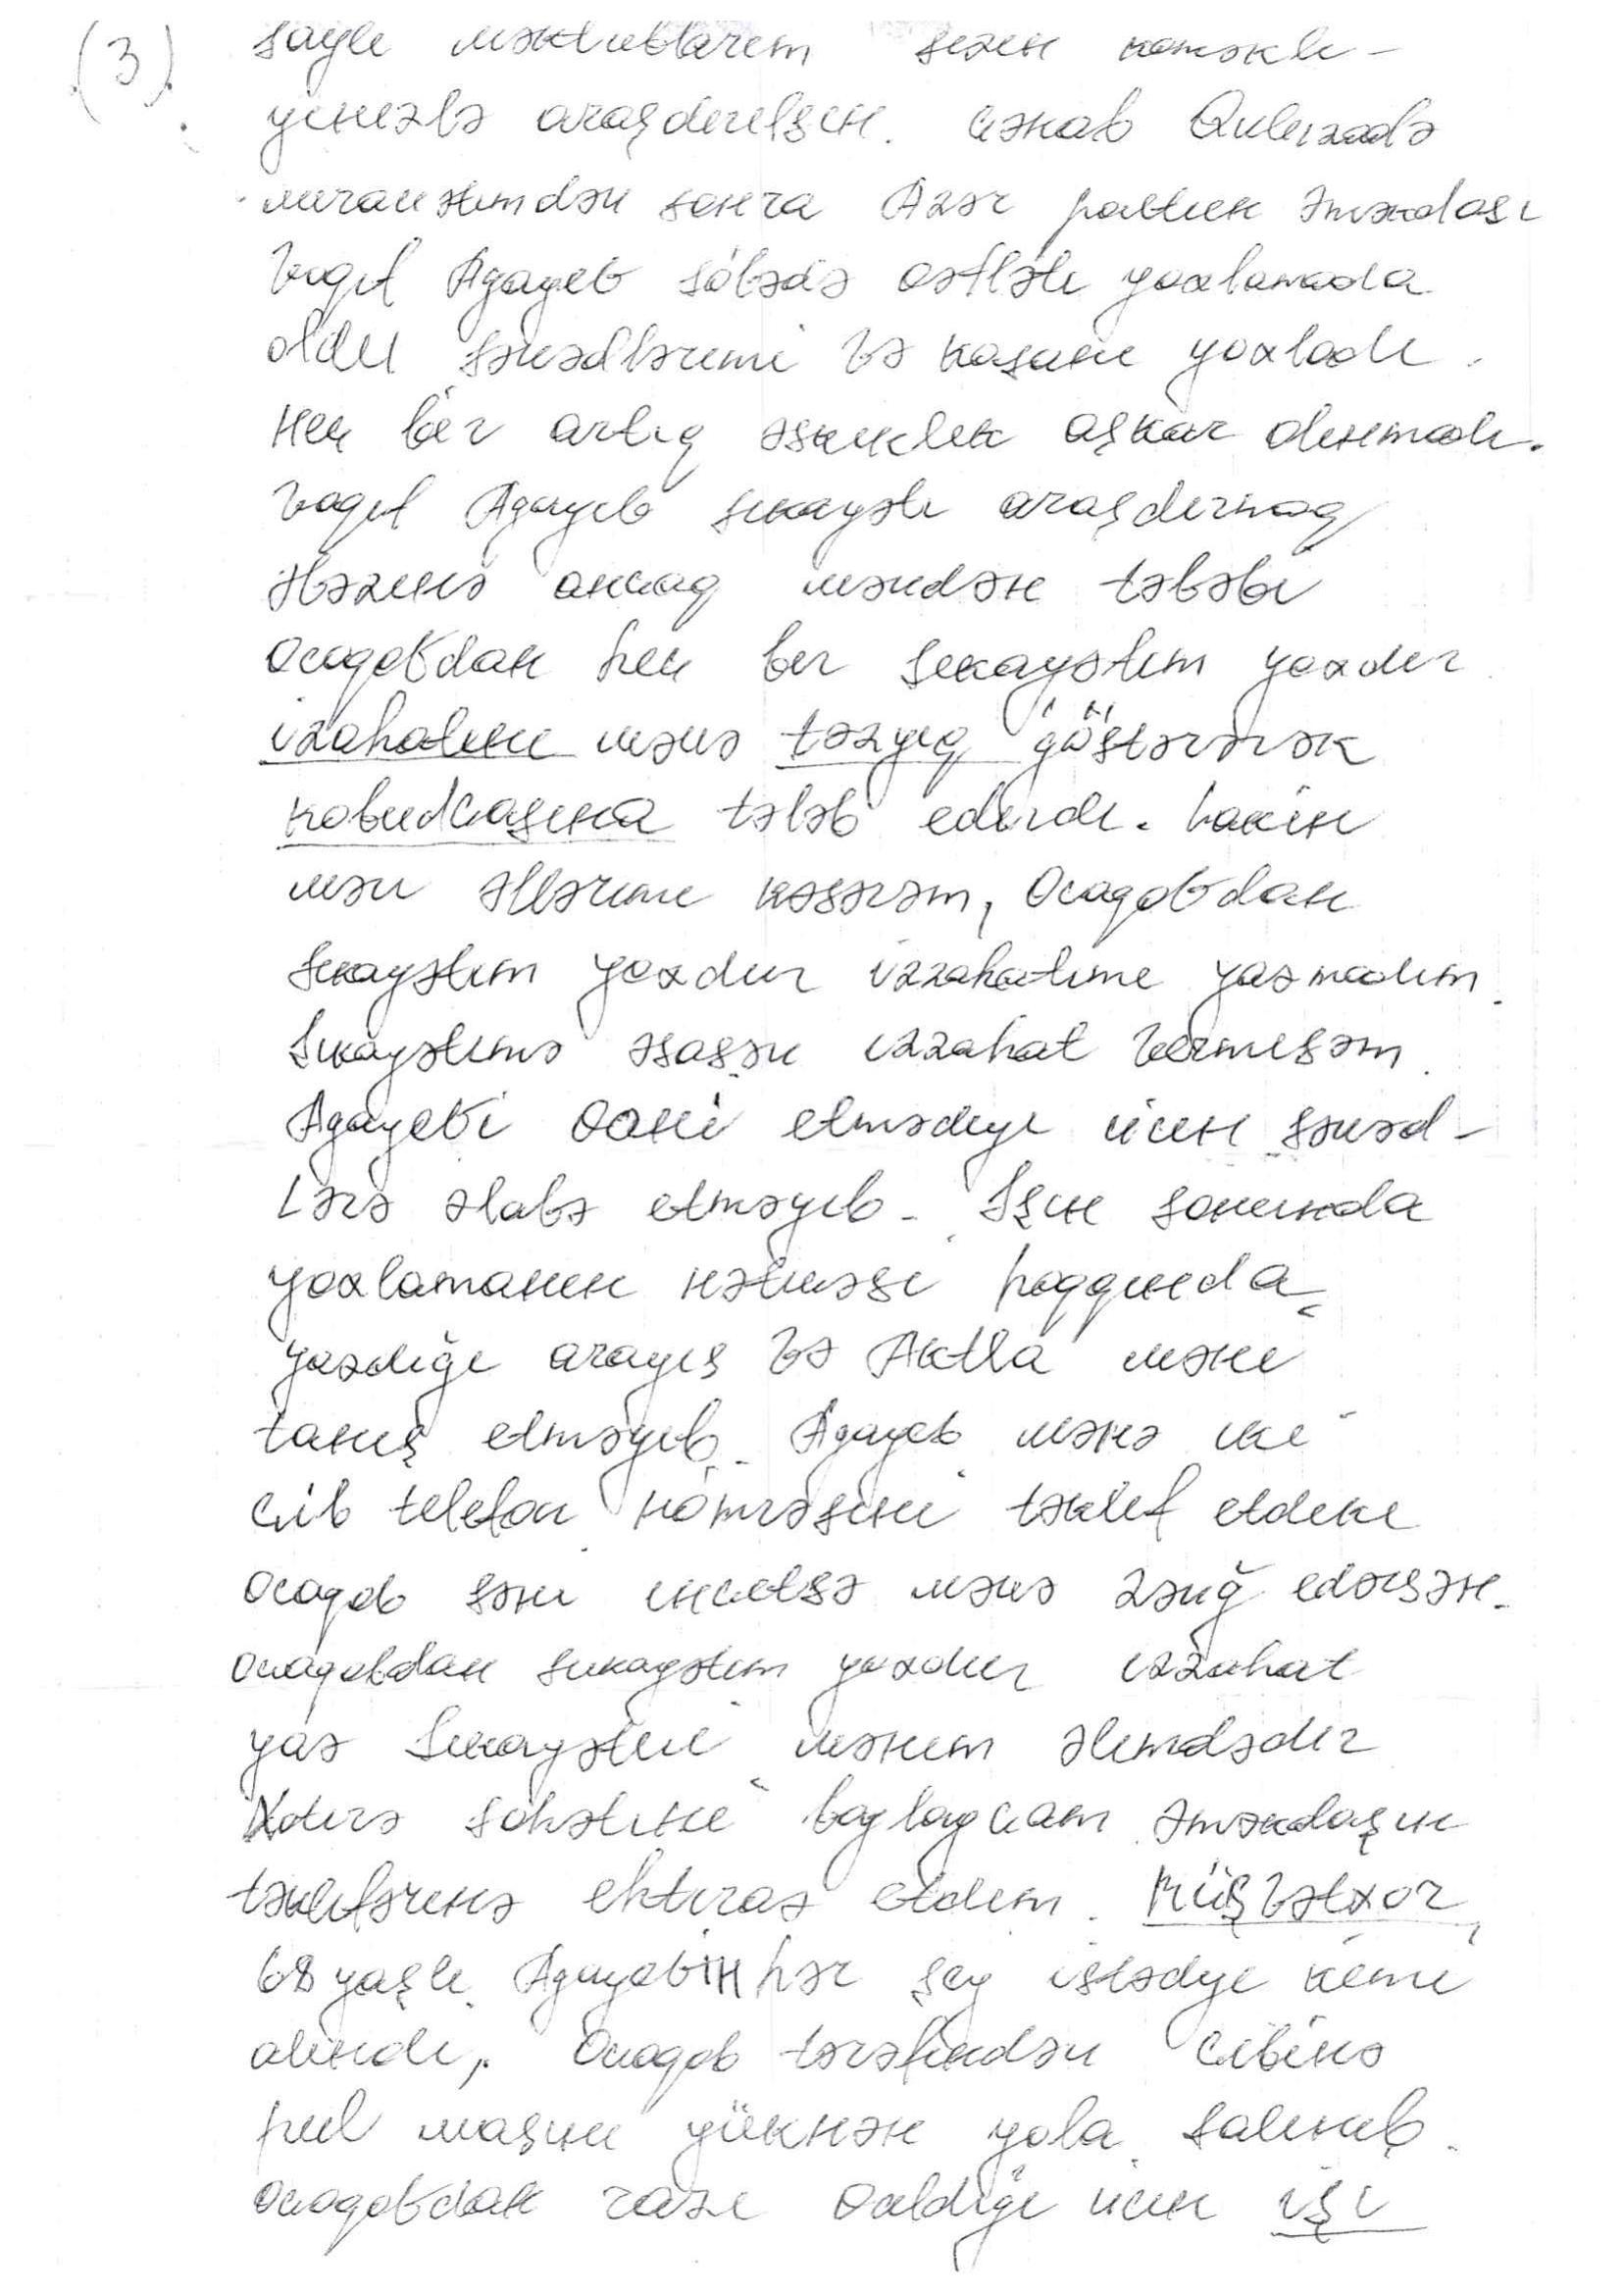 (3)
saylı məktublarım sizin köməkli-
yinizlə araşdırılsın. Cənab Quluzadə
müraciətimdən sonra Azər poçtun əməkdaşı
Vaqif Agayev şöbədə qəflətli yoxlamada
oldu sənədlərimi və kassanı yoxladı.
Heç bir artıq əskiklik aşkar olunmadı.
Vaqif Agayev şikayəti araşdırmaq
əvəzinə ancaq məndən tələbi
Ocaqovdan heç bir şikayətim yoxdur
izahatını mənə təzyiq göstərərək
kobudcasına tələb edirdi. Lakin
mən əllərimi kəsərəm, Ocaqovdan
şikayətim yoxdur izzahatımı yazmadım.
Şikayətimə əsasən izzahat vermişəm.
Agayevi qane etmədiyi üçün sənəd-
lərə əlavə etməyib. İşin sonunda
yoxlamanın nəticəsi haqqında
yazdığı arayış və Aktla məni
tanış etməyib. Agayev mənə iki
cib telefon nömrəsini təklif etdiki
Ocaqov səni incitsə mənə zəng edərsən.
Ocaqovdan şikayətim yoxdur izzahat
yaz Şikayətin mənim əlimdədir
söhbətini baglayacam əməkdaşın
təkliflərinə etiraz etdim. Rüşvətxor
68 yaşlı Agayevin hər şey istədiyi kimi
alındı, Ocaqov tərəfindən cibinə
pul maşını yüknən yola salınıb.
Ocaqovdan razı qaldığı üçün işi